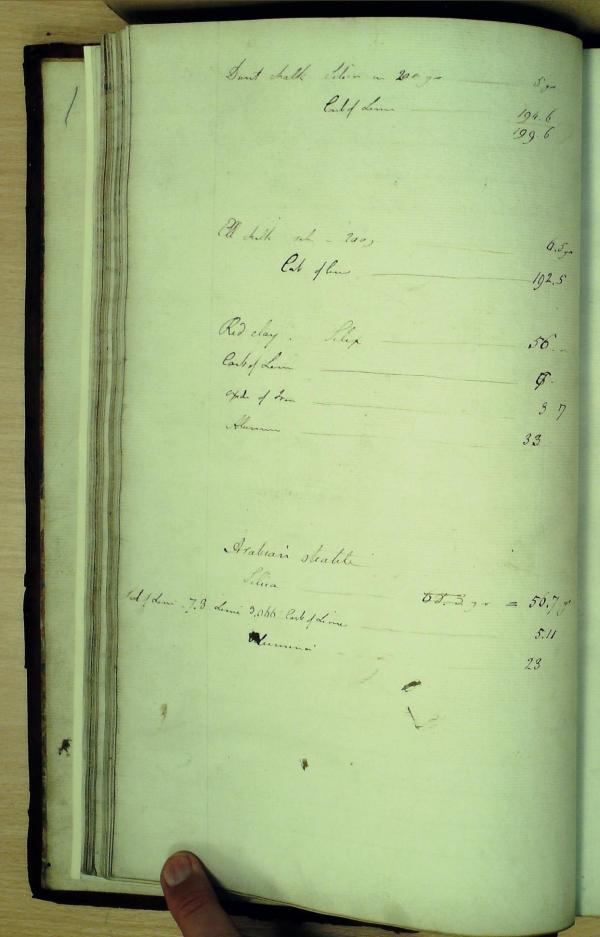 chalk Silica in 200 gr 5 gr
Carb of Lime 194.6
199.6
chalk 200 6.5 gr
Carb of Lime 192.5
Red clay. Silex 56
Carb of Lime
Oxide of Iron 3 7
Alumine 33
Arabian steatite
Silica gr = 50.7 gr
of Lime 7.3 Lime 3,066 Carb of Lime 5.11
Alumina 23